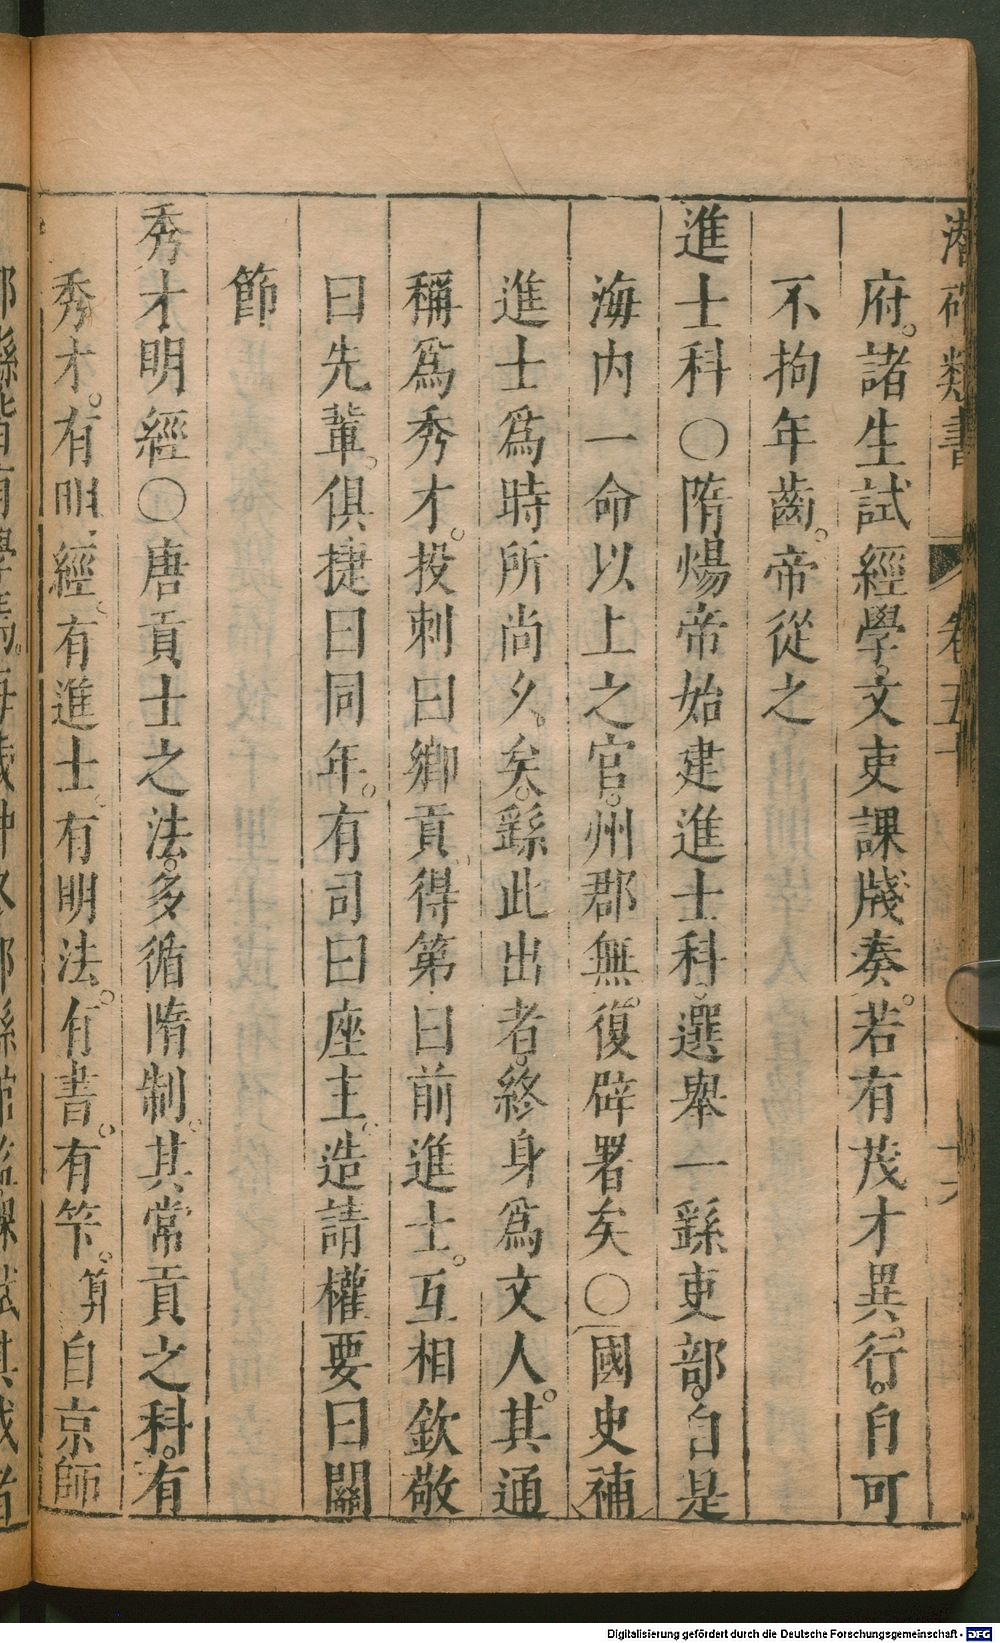 潛確類書 卷五十 十六
府諸生試經學文吏課牋奏若有茂才異行自可
不拘年齒帝從之
進士科〇隋煬帝始建進士科選舉一繇吏部自是
海內一命以上之官州郡無復辟署矣〇國史補
進士爲時所尚久矣繇此出者終身爲文人其通
稱爲秀才投刺曰鄉貢得第曰前進士互相欽敬
曰先輩俱捷曰同年有司曰座主造請權要曰關
節
秀才明經〇唐貢士之法多循隋制其常貢之科有
秀才有明經有進士有明法有書有筭自京師
郡縣皆有學焉每歲仲冬郡縣館監課試其成者
Digitalisierung gefördert durch die Deutsche Forschungsgemeinschaft - DFG